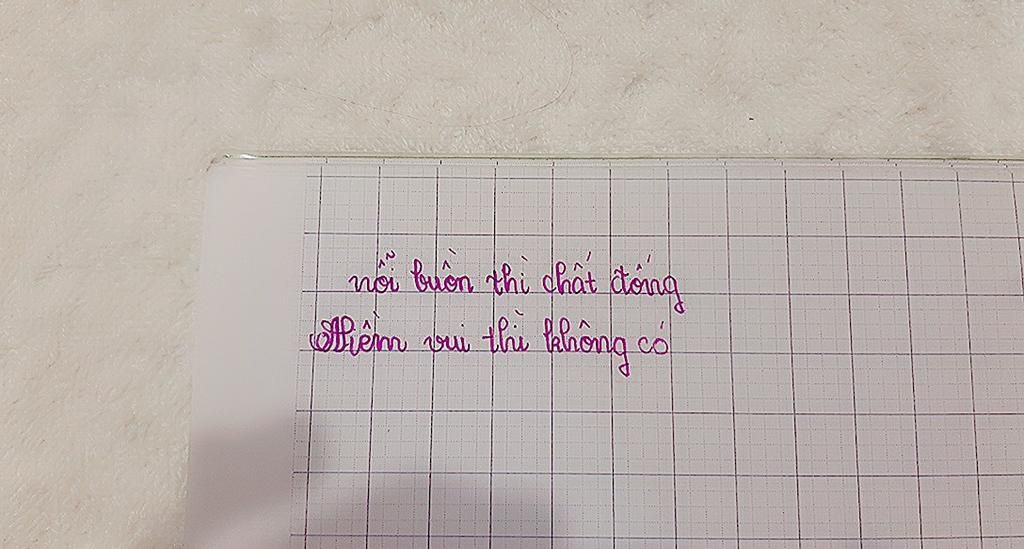 nỗi buồn thì chất đống
Niềm vui thì không có